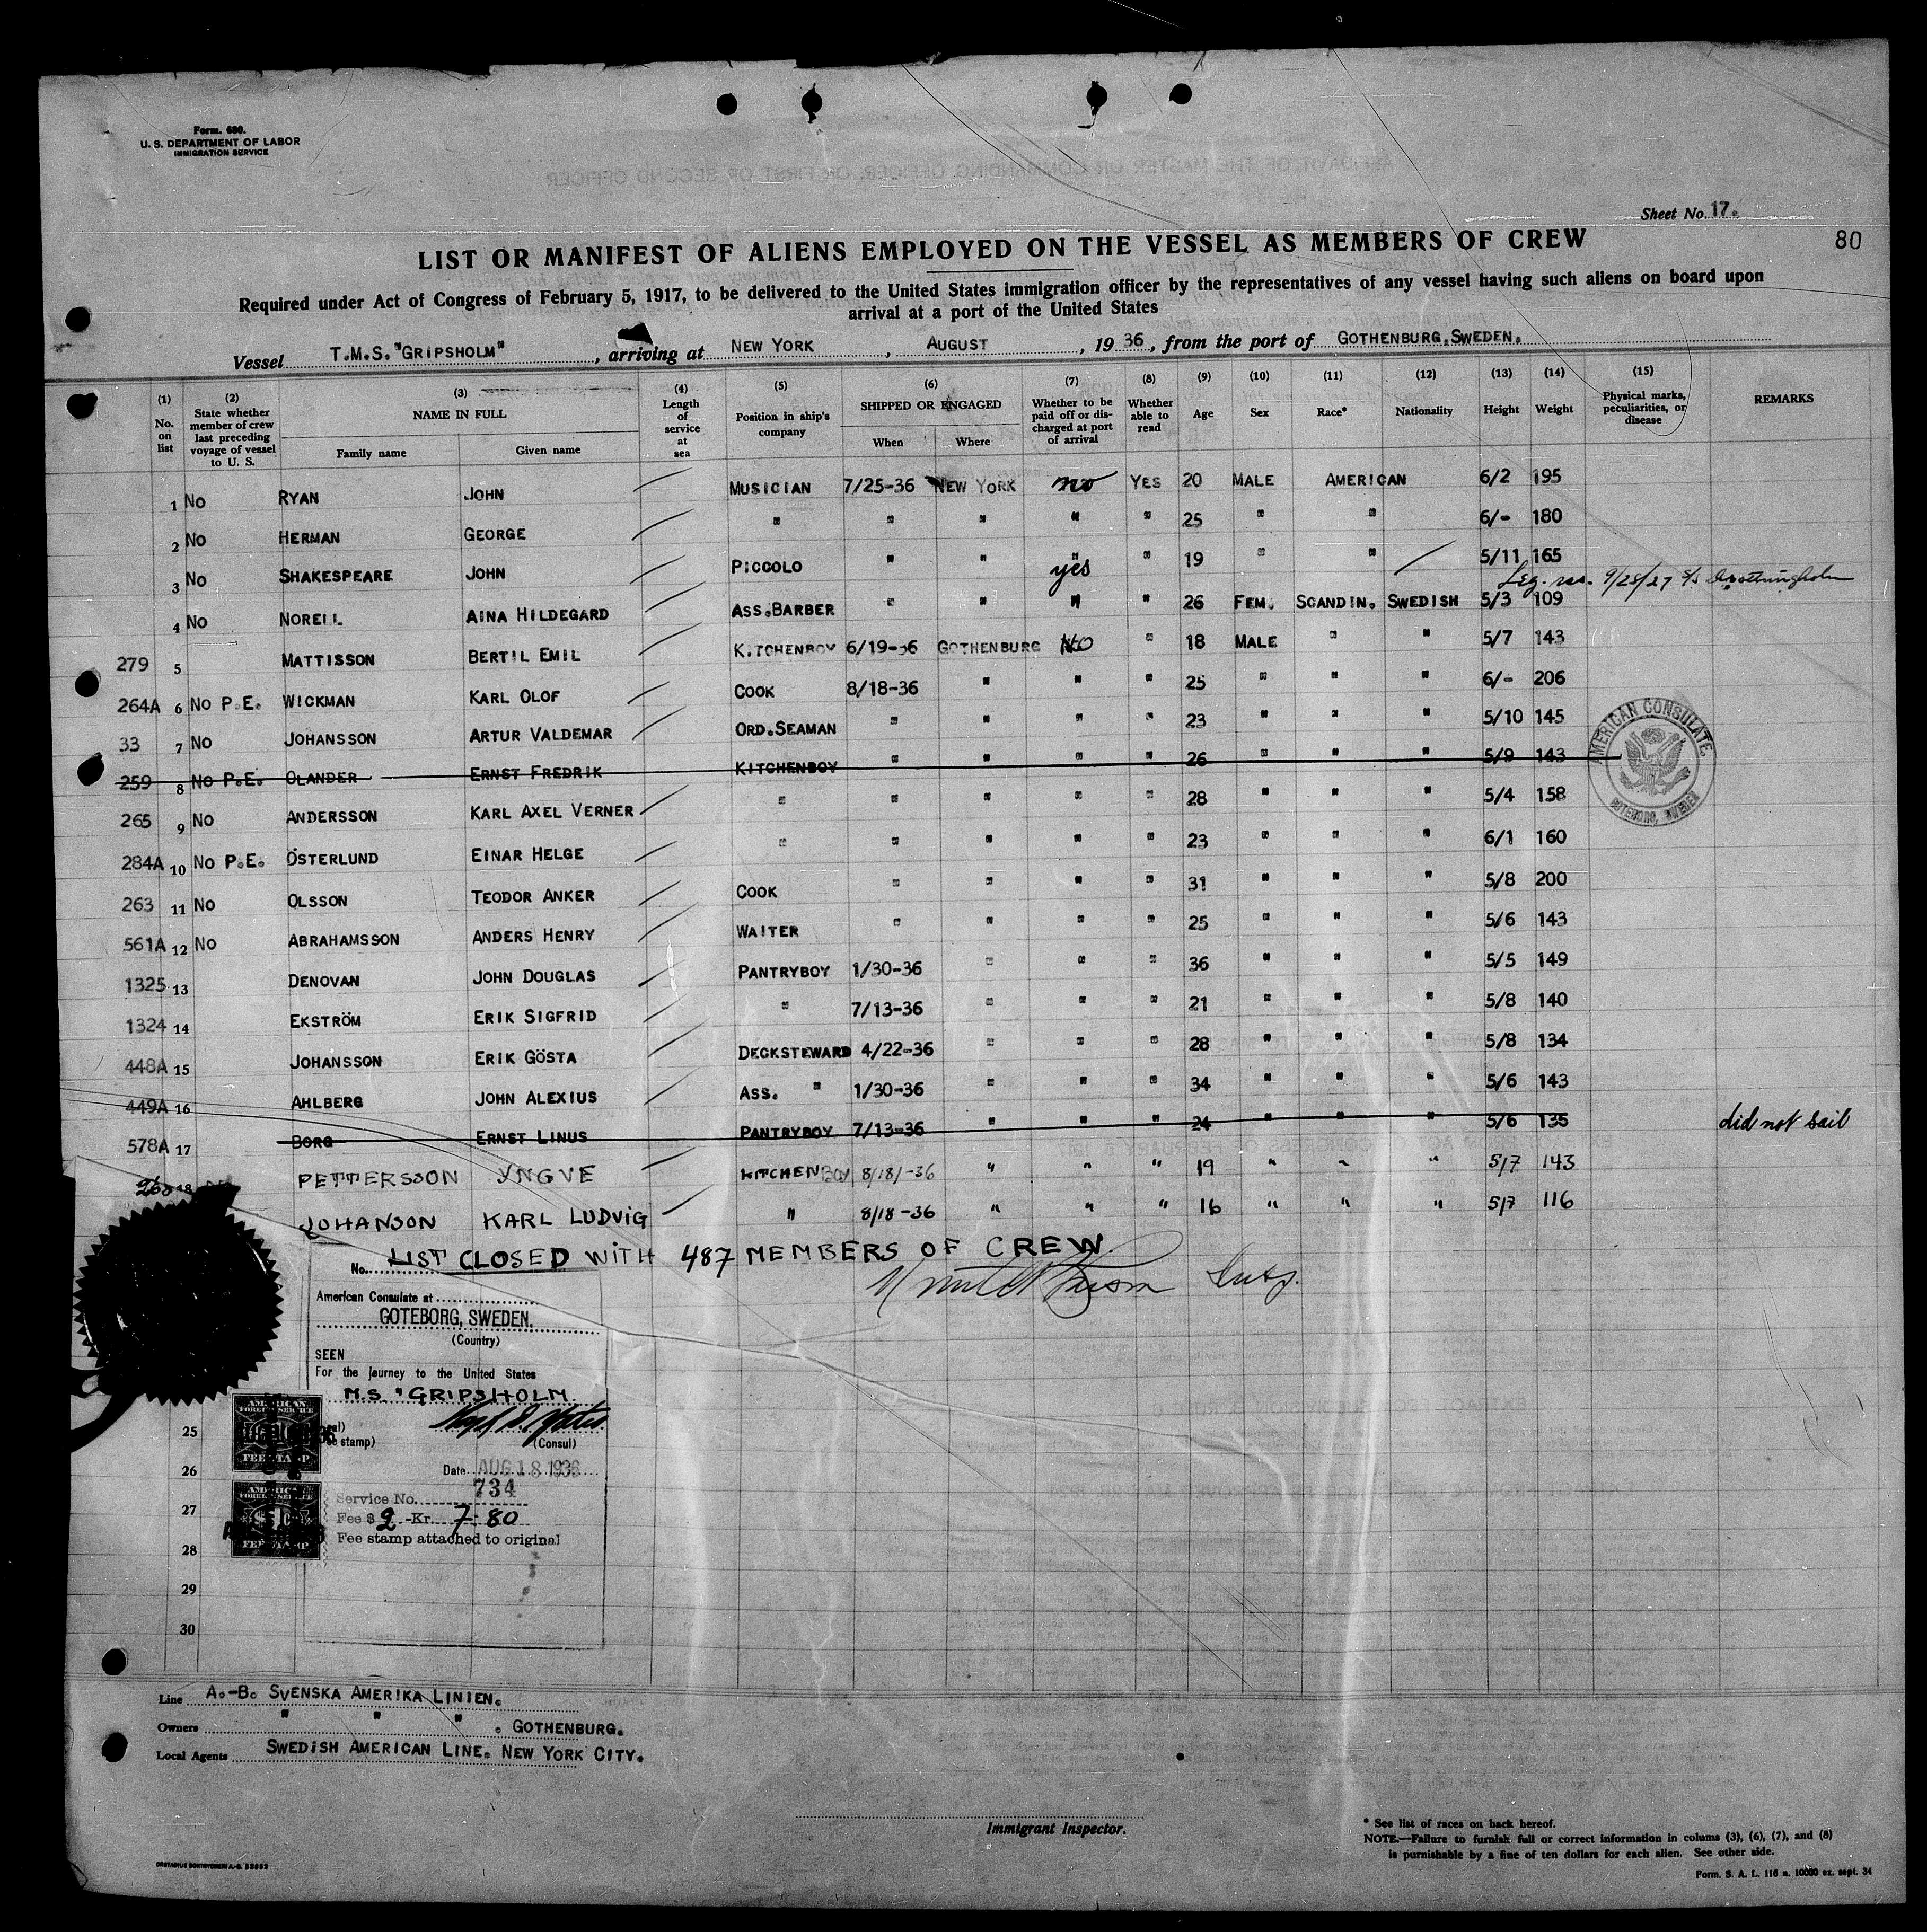 Form. 680.
U. S. DEPARTMENT OF LABOR
IMMIGRATION SERVICE
Sheet No. 17.
80
LIST OR MANIFEST OF ALIENS EMPLOYED ON THE VESSEL AS MEMBERS OF CREW
Required under Act of Congress of February 5, 1917, to be delivered to the United States immigration officer by the representatives of any vessel having such aliens on board upon
arrival at a port of the United States
Vessel T.M.S. "GRIPSHOLM", arriving at NEW YORK, AUGUST, 19 36, from the port of GOTHENBURG, SWEDEN.
(1) No. on list
(2) State whether member of crew last preceding voyage of vessel to U. S.
(3) NAME IN FULL Family name Given name
(4) Length of service at sea
(5) Position in ship's company
(6) SHIPPED OR ENGAGED When Where
(7) Whether to be paid off or discharged at port of arrival
(8) Whether able to read
(9) Age
(10) Sex
(11) Race*
(12) Nationality
(13) Height
(14) Weight
(15) Physical marks, peculiarities, or disease
REMARKS
1 No RYAN JOHN MUSICIAN 7/25-36 NEW YORK no YES 20 MALE AMERICAN 6/2 195
2 No HERMAN GEORGE " " " " " 25 " " 6/- 180
3 No SHAKESPEARE JOHN PICCOLO " " " yes " 19 " " 5/11 165
9/25/27
4 No NORELL AINA HILDEGARD ASS. BARBER " " " " 26 FEM. SCANDIN. SWEDISH 5/3 109
279 5 MATTISSON BERTIL EMIL KITCHENBOY 6/19-36 GOTHENBURG NO " 18 MALE " " 5/7 143
264A 6 No P.E. WICKMAN KARL OLOF COOK 8/18-36 " " " 25 " " " 6/- 206
33 7 No JOHANSSON ARTUR VALDEMAR ORD. SEAMAN " " " " 23 " " " 5/10 145
259 8 No P.E. OLANDER ERNST FREDRIK KITCHENBOY " " " " 26 " " " 5/9 143
265 9 No ANDERSSON KARL AXEL VERNER " " " " " 28 " " " 5/4 158
284A 10 No P.E. ÖSTERLUND EINAR HELGE " " " " " 23 " " " 6/1 160
263 11 No OLSSON TEODOR ANKER COOK " " " " 31 " " " 5/8 200
561A 12 No ABRAHAMSSON ANDERS HENRY WAITER " " " " 25 " " " 5/6 143
1325 13 DENOVAN JOHN DOUGLAS PANTRYBOY 1/30-36 " " " 36 " " " 5/5 149
1324 14 EKSTRÖM ERIK SIGFRID " 7/13-36 " " " 21 " " " 5/8 140
448A 15 JOHANSSON ERIK GÖSTA DECKSTEWARD 4/22-36 " " " 28 " " " 5/8 134
449A 16 AHLBERG JOHN ALEXIUS ASS. " 1/30-36 " " " 34 " " " 5/6 143
578A 17 BORG ERNST LINUS PANTRYBOY 7/13-36 " " " 24 " " " 5/6 135 did not sail
18 PETTERSSON YNGVE KITCHENBOY 8/18/-36 " " " 19 " " " 5/7 143
JOHANSON KARL LUDVIG " 8/18-36 " " " 16 " " " 5/7 116
LIST CLOSED WITH 487 MEMBERS OF CREW.
AMERICAN CONSULATE,
GOTEBORG, SWEDEN
No.
American Consulate at
GOTEBORG, SWEDEN.
(Country)
SEEN
For the journey to the United States
M.S. "GRIPSHOLM
stamp)
(Consul)
Date AUG 18 1936
Service No. 734
Fee $ 2 -Kr. 7:80
Fee stamp attached to original
AMERICAN
FOREIGN SERVICE
FEE STAMP
AMERICAN
FOREIGN SERVICE
$1
FEE STAMP
25
26
27
28
29
30
Line A.-B. SVENSKA AMERIKA LINIEN.
Owners " " " . GOTHENBURG.
Local Agents SWEDISH AMERICAN LINE. NEW YORK CITY.
Immigrant Inspector.
* See list of races on back hereof.
NOTE.—Failure to furnish full or correct information in colums (3), (6), (7), and (8)
is purnishable by a fine of ten dollars for each alien. See other side.
Form. S. A. L. 116 n. 10000 ex. sept. 34